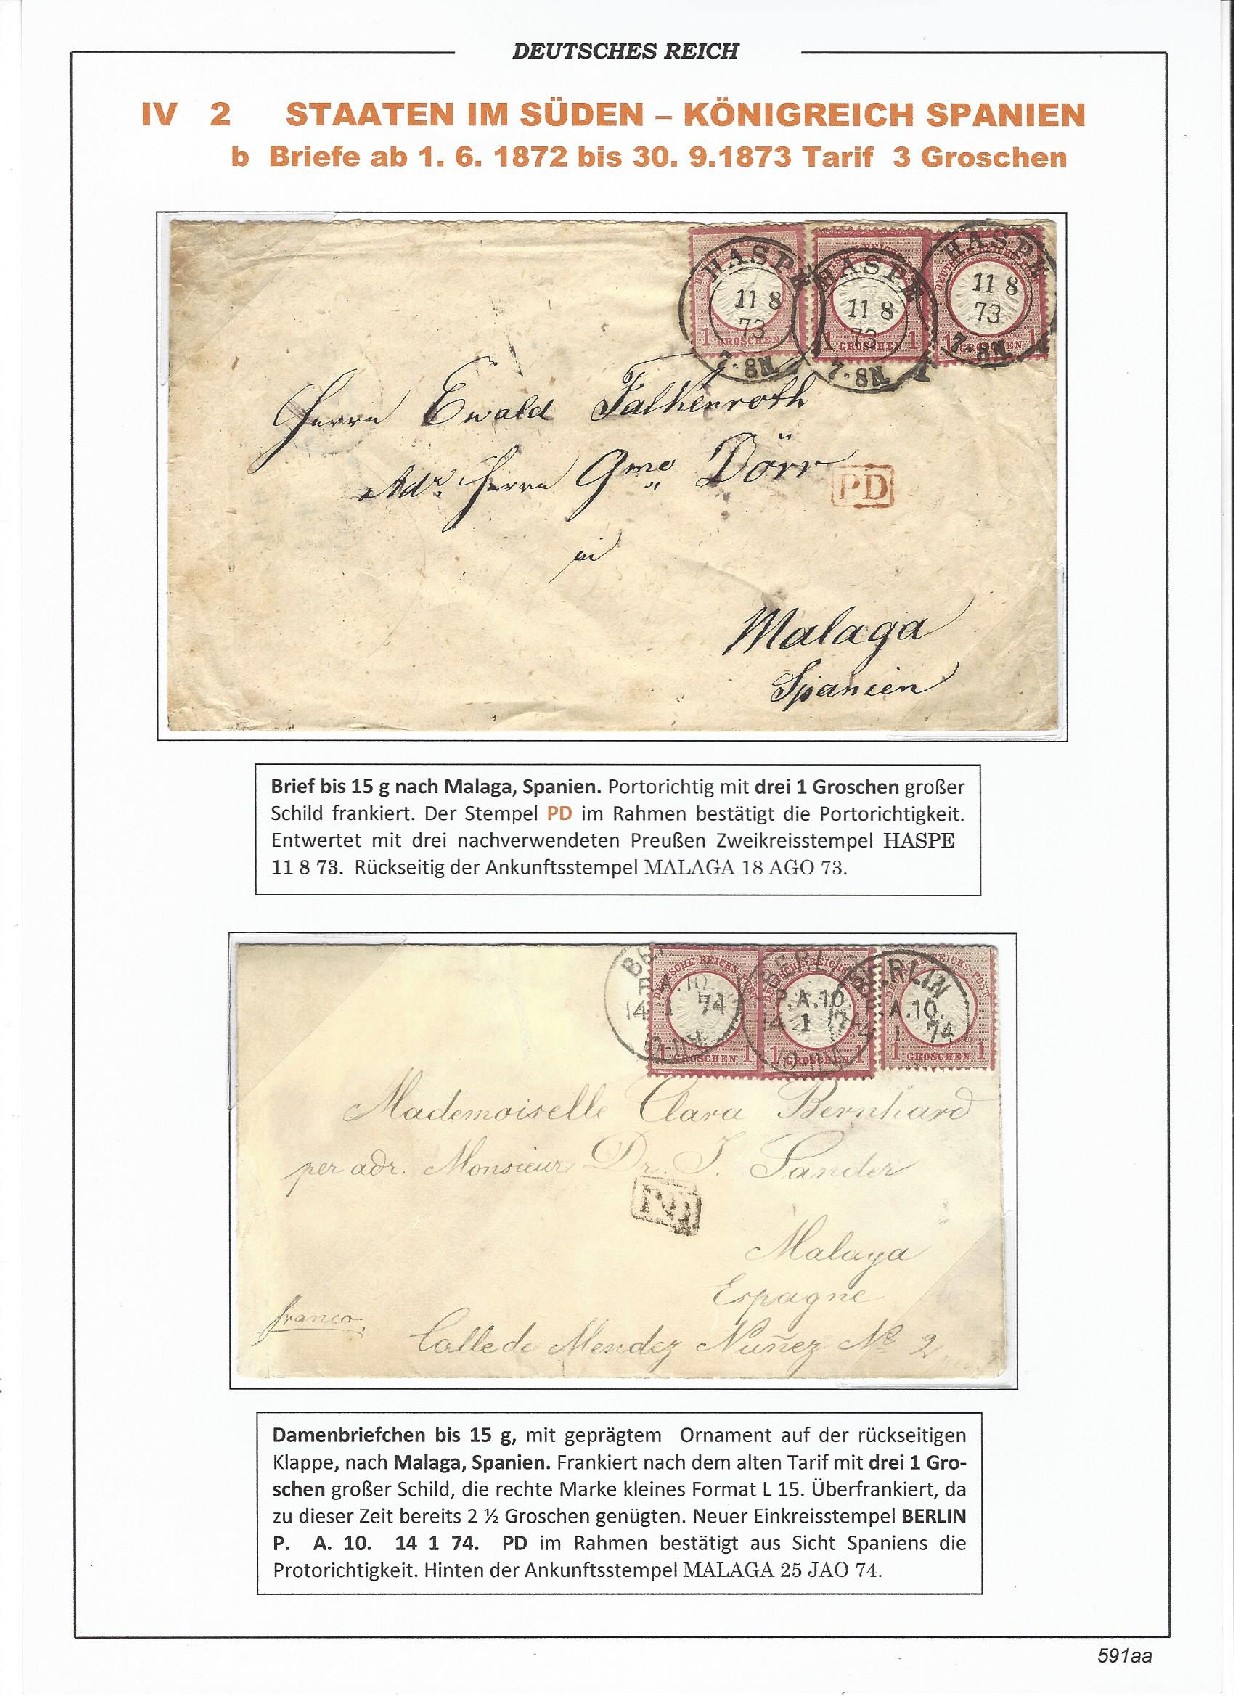 DEUTSCHES REICH
IV 2 STAATEN IM SÜDEN – KÖNIGREICH SPANIEN
b Briefe ab 1. 6. 1872 bis 30. 9.1873 Tarif 3 Groschen
HASPE HASPE HASPE
11 8 11 8 11 8
73 73 73
1 GROSCHEN 1 GROSCHEN 1 1 GROSCHEN
7-8N. 7-8N. 7-8N.
Herrn Ewald Falkenroth
Adr. Herrn Gmo Dörr
PD
in
Malaga
Spanien
Brief bis 15 g nach Malaga, Spanien. Portorichtig mit drei 1 Groschen großer
Schild frankiert. Der Stempel PD im Rahmen bestätigt die Portorichtigkeit.
Entwertet mit drei nachverwendeten Preußen Zweikreisstempel HASPE
11 8 73. Rückseitig der Ankunftsstempel MALAGA 18 AGO 73.
BERL BERLIN
P.A.10. P.A.10. A.10.
14 1 74 14 1 74 1 74
GROSCHEN 1 GROSCHEN 1 1 GROSCHEN 1
Mademoiselle Clara Bernhard
per adr. Monsieur Dr. J. Sander
PD
Malaga
Espagne
franco.
Calle de Mendez Nuñez No 2
Damenbriefchen bis 15 g, mit geprägtem Ornament auf der rückseitigen
Klappe, nach Malaga, Spanien. Frankiert nach dem alten Tarif mit drei 1 Gro-
schen großer Schild, die rechte Marke kleines Format L 15. Überfrankiert, da
zu dieser Zeit bereits 2 ½ Groschen genügten. Neuer Einkreisstempel BERLIN
P. A. 10. 14 1 74. PD im Rahmen bestätigt aus Sicht Spaniens die
Protorichtigkeit. Hinten der Ankunftsstempel MALAGA 25 JAO 74.
591aa